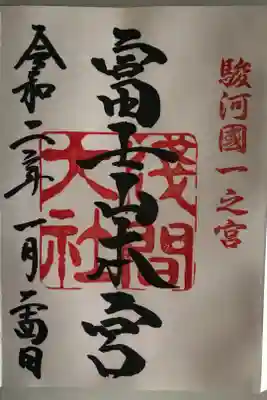 駿河國一之宮
富士山本宮
淺間
大社
令和二年一月二四日